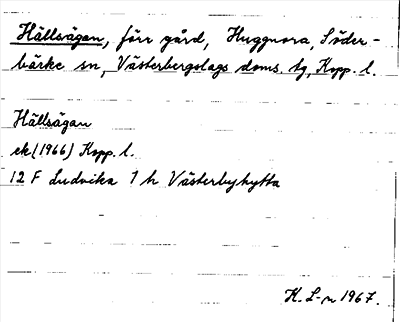 Hällsägan, förr gård, Huggnora, Söder-
bärke sn, Västerbergslags doms. tg, Kopp. l.
Hällsägan
ek (1966) Kopp. l.
12 F Ludvika 7 h Västerbyhytta
K. L-n 1967.